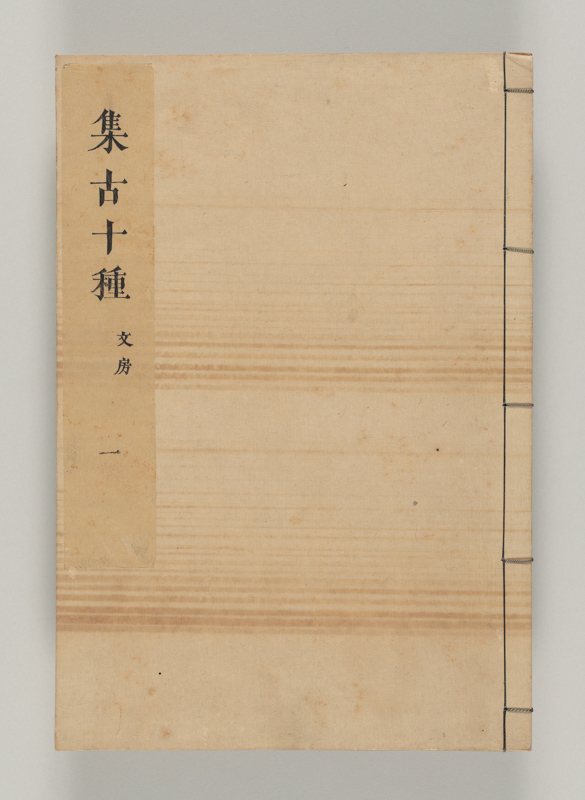 集古十種
文房
一